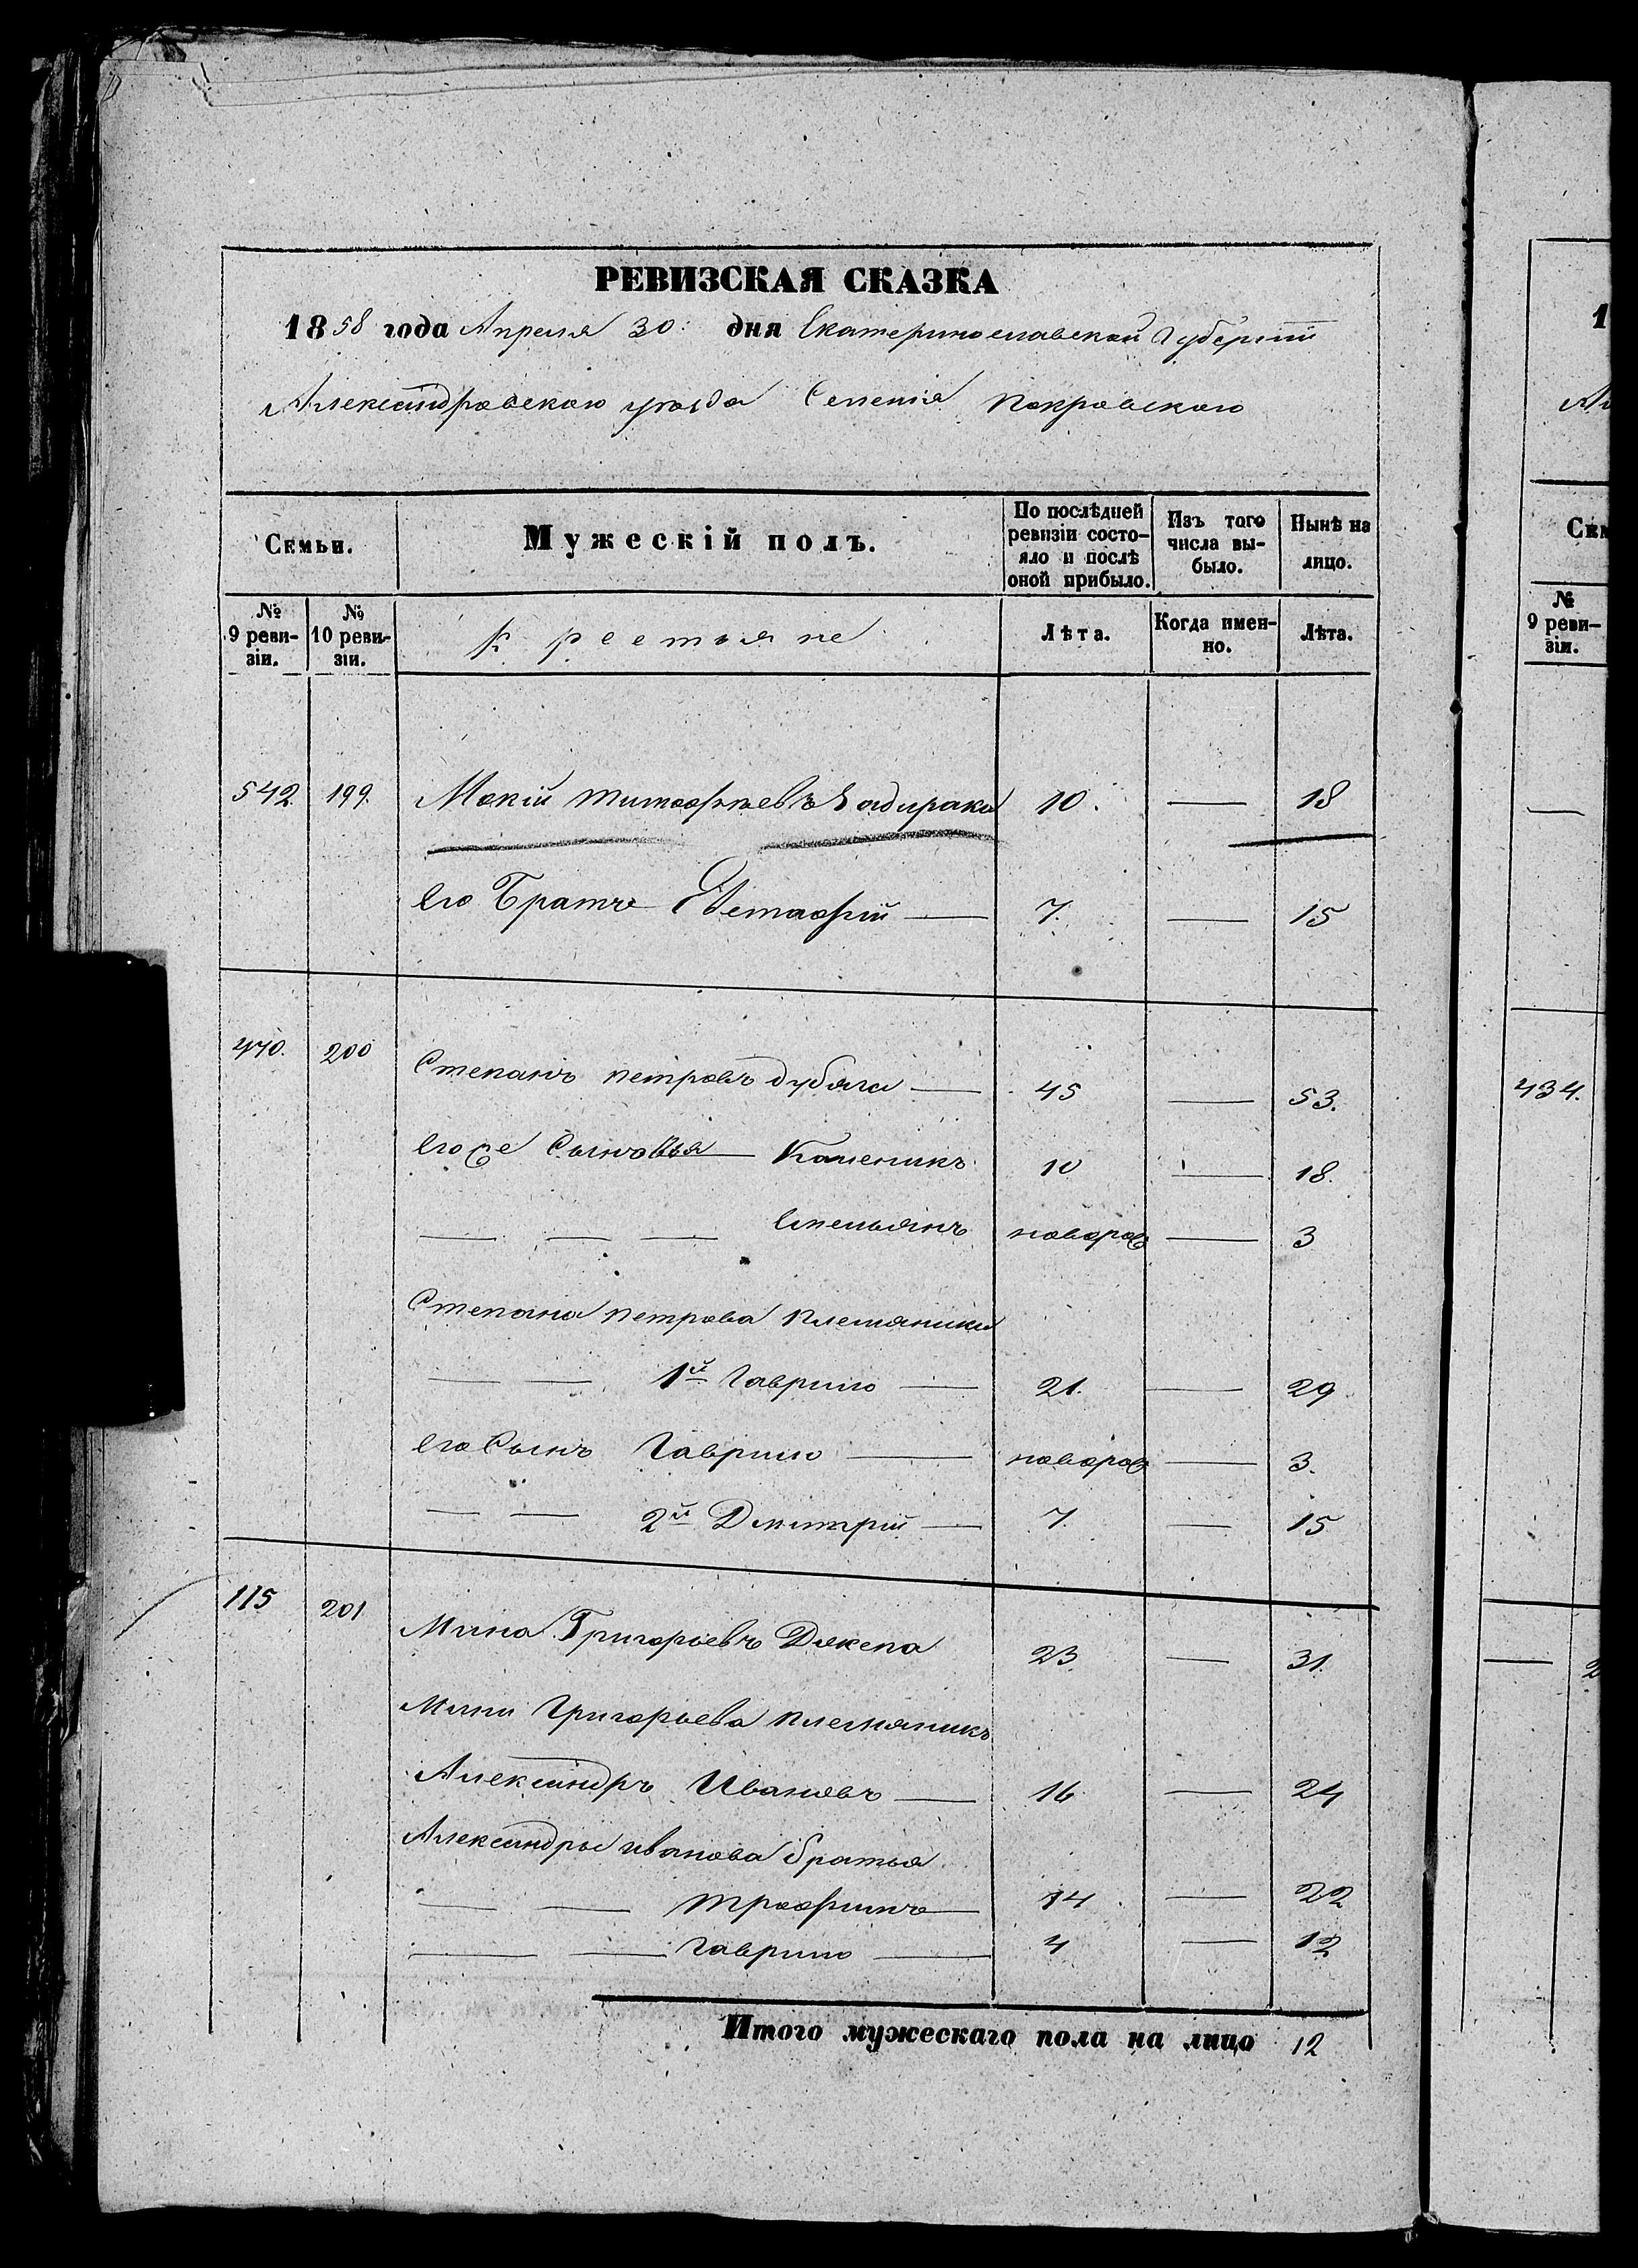 РЕВИЗСКАЯ СКАЗКА
1858 года Апреля 30. дня Екатеринославской Губерніи
Александровскаго уѣзда Селенія Покровскаго
Семьи.
Мужескій полъ.
По послѣдней ревизіи состо-
яло и послѣ
оной прибыло.
Изъ того
числа вы-
было.
Нынѣ на
лицо.
№
9 реви-
зіи.
№
10 реви-
зіи.
Крестьяне
Лѣта.
Когда имен-
но.
Лѣта.
542. 199. Мокій Тимофѣевъ Задирака 10. — 18
его Братъ Евстафій — 7. — 15
470. 200 Степанъ Петровъ Дубяга — 45 — 53.
его Сыновья — Каленикъ 10 — 18.
— — — Емельянъ новорож — 3
Степана Петрова племяники
— — 1й Гаврило — 21. — 29
его Сынъ Гаврило — новорож — 3.
— — 2й Дмитрій — 7. — 15
115 201 Мина Григорьевъ 23. — 31.
Мины Григорьева племяникъ
Александръ Ивановъ — 16 — 24
Александры Иванова братья
— — Трофимъ — 14 — 22
— — Гаврило — 4 — 12
Итого мужескаго пола на лицо 12
1
Сем
№
9 реви-
зіи.
—
434.
—